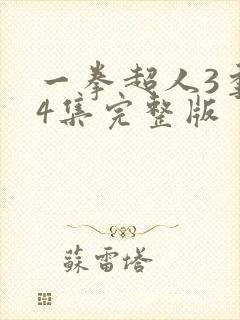 一拳超人3季
4集完整版
蘇雷塔